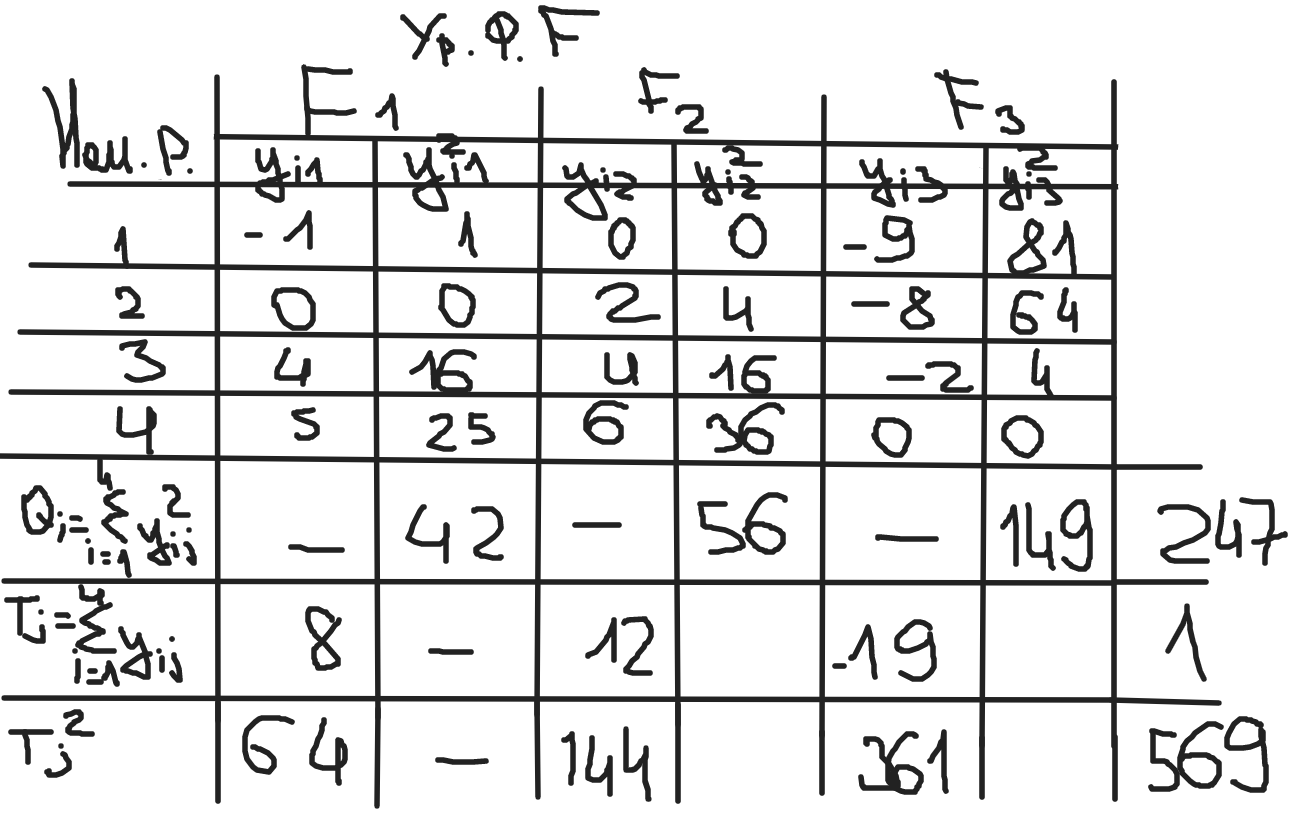 Ур. Ф. F
Исп. F1 F2 F3
yi1 y²i1 yi2 y²i2 yi3 y²i3
1 -1 1 0 0 -9 81
2 0 0 2 4 -8 64
3 4 16 4 16 -2 4
4 5 25 6 36 0 0
Qj=4∑i=1 y²ij - 42 - 56 - 149 247
Tj=4∑i=1 yij 8 - 12 -19 1
Tj² 64 - 144 361 569